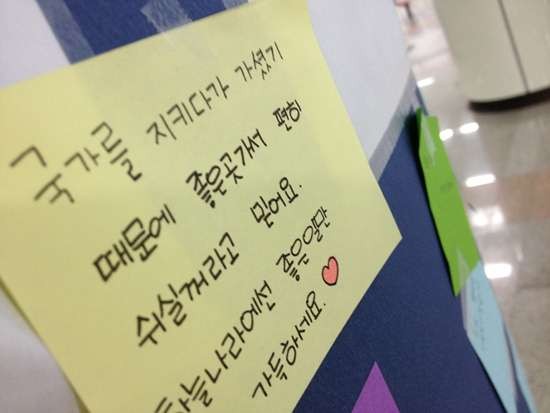 국가를 지키다가 가셨기
때문에 좋은곳가서 편히
쉬실꺼라고 믿어요.
하늘나라에선 좋은일만
가득하세요.